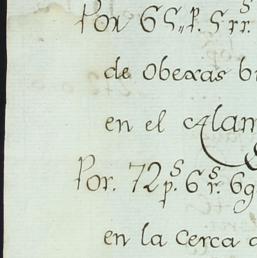 Por 65,, p.s 5 rr.s
de obexas b
en el Alam
Por. 72 p.s 6 r.s 69
en la cerca